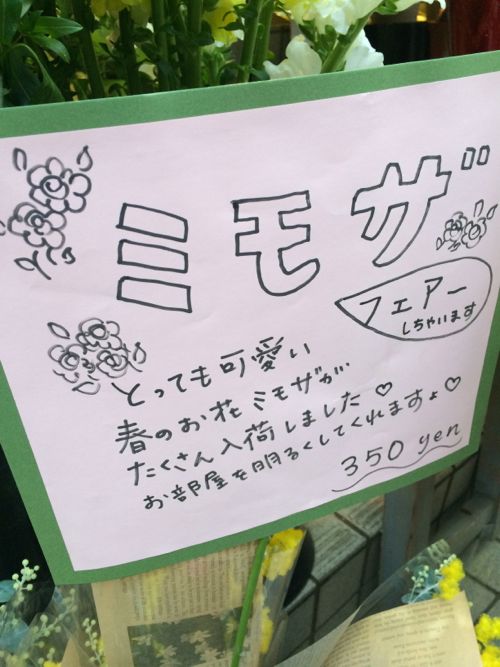 ミモザ
フェアー
しちゃいます
とっても可愛い
春のお花ミモザが
たくさん入荷しました♡
お部屋を明るくしてくれますよ♡
350 yen